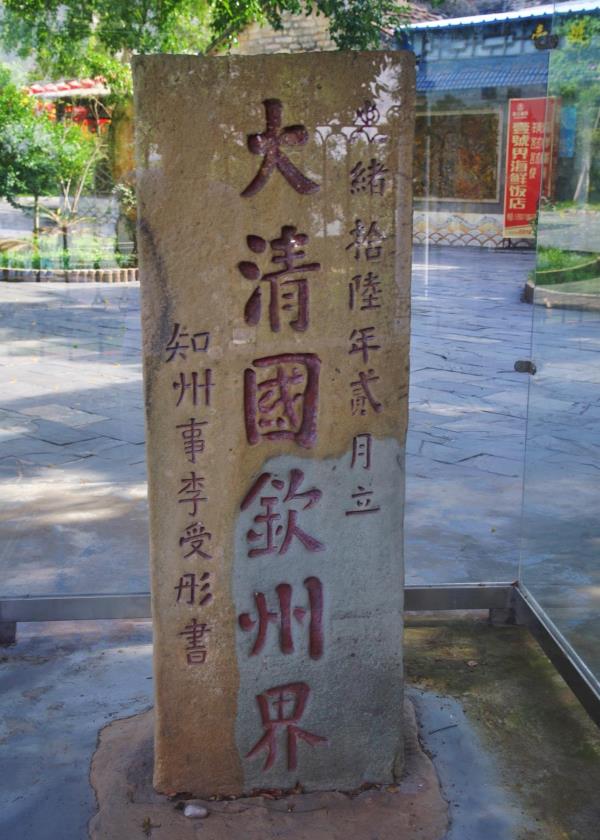 光緒拾陸年貳月立
大清國欽州界
知州事李受彤書
壹號界海鮮饭店